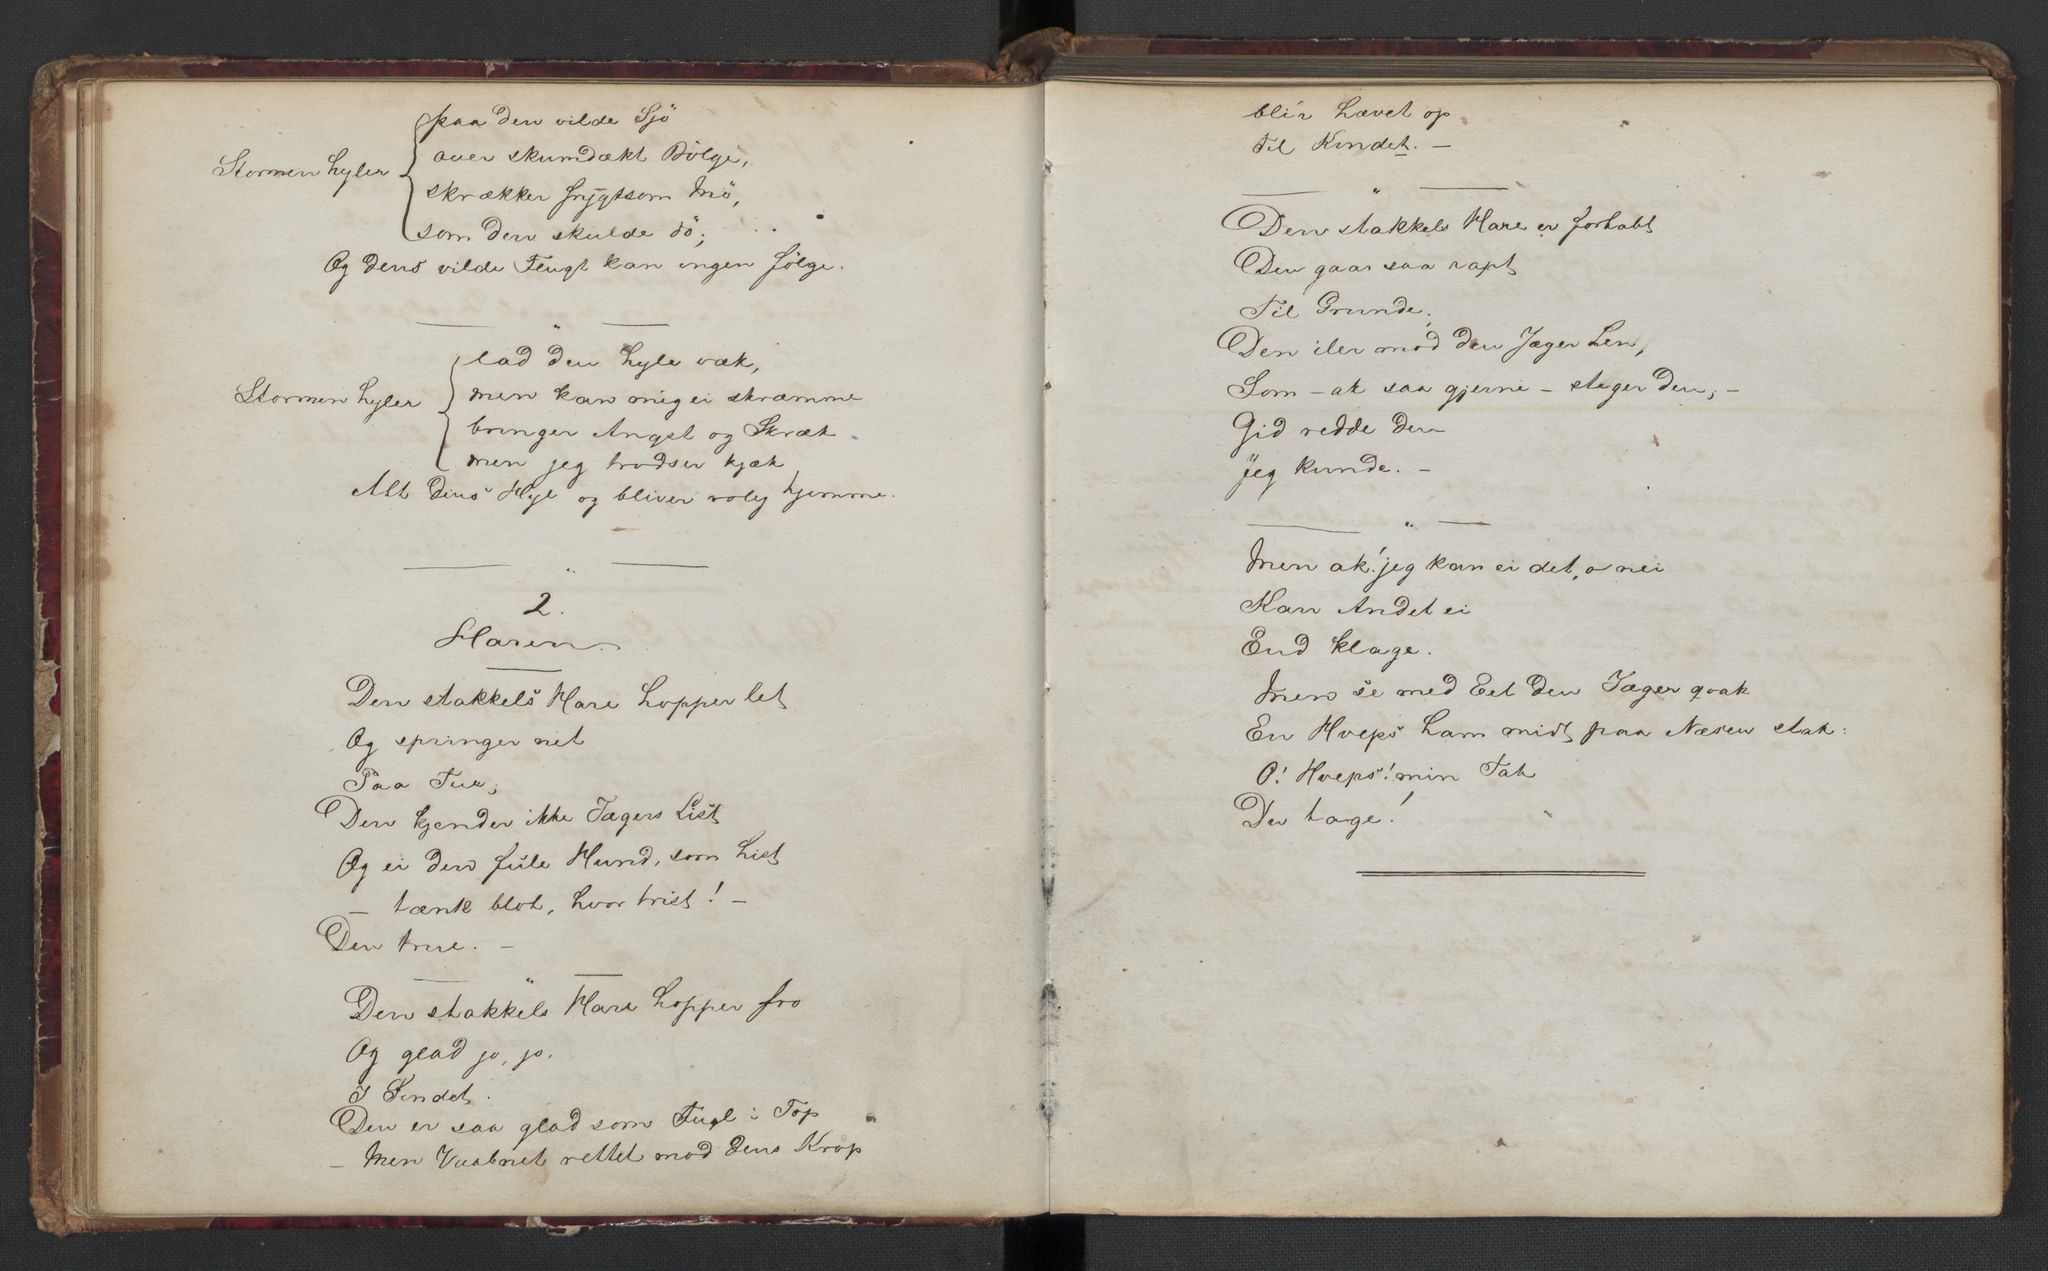 paa den vilde Sjö
over skumdækt Bölge,
Stormen hyler
skrækker frygtsom Mö,
som den skulde dö;
Og dens vilde Flugt kan ingen fölge.
"
lad den hyle væk,
Stormen hyler
men kan mig ei skræmme
bringer Angst og Skræk
men jeg trodser kjæk
Alt dens Hyl og bliver rolig hjemme.
"
2.
Haren.
Den stakkels Hare hopper let
Og springer net
Paa Tue;
Den kjender ikke Jægers List
Og ei den fule Hund, som hist
– tænk blot, hvor trist! –
Den true. –
"
Den stakkels Hare hopper fro
Og glad jo, jo.
I Sindet.
Den er saa glad som Fugl i Top
– Men Vaabnet rettet mod dens Krop
blir hævet op
Til Kindet. –
"
Den stakkels Hare er fortabt
Den gaar saa rapt
Til Grunde;
Den iler mod den Jæger hen,
Som – ak saa gjerne – steger den; –
Gid redde den
Jeg kunde. –
"
Men ak! jeg kan ei det, o nei
Kan Andet ei
End klage.
Men se med Eet den Jæger qvak
En Hveps ham midt paa Næsen stak:
O! Hveps! min Tak
Du tage!